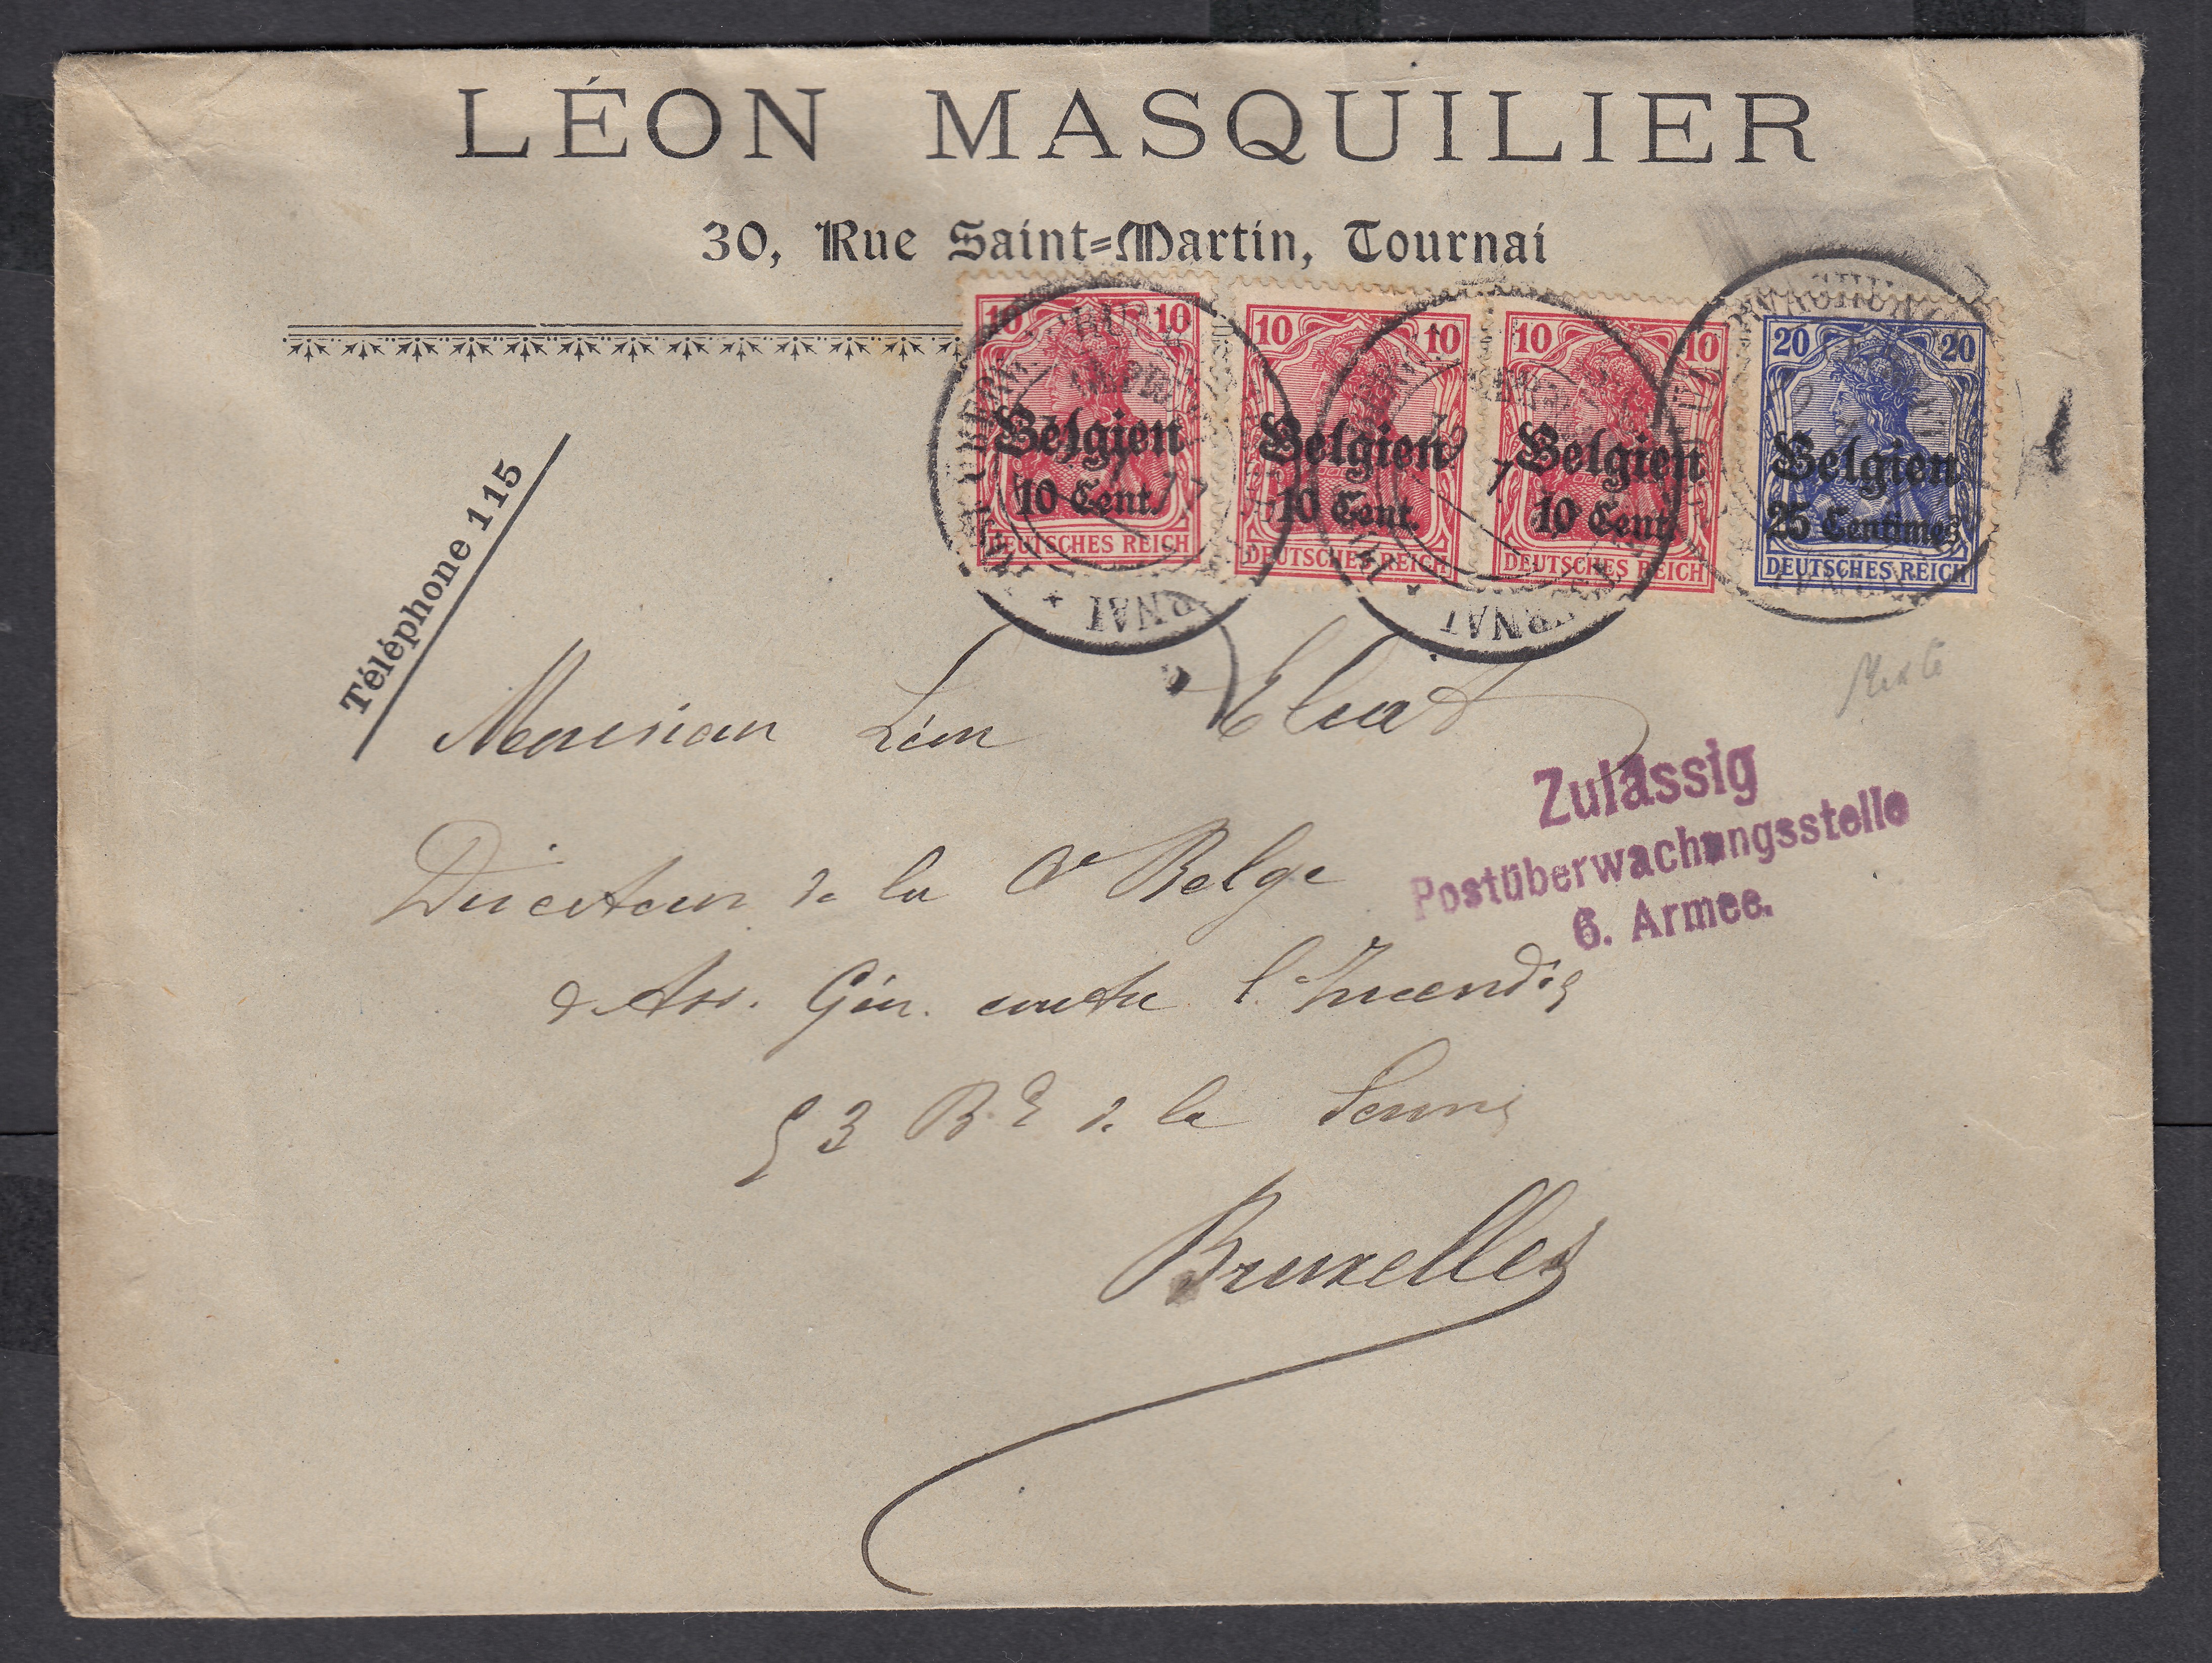 LÉON MASQUILIER
30, Rue Saint-Martin, Tournai
Téléphone 115
10 10
Belgien
10 Cent.
DEUTSCHES REICH
10 10
Belgien
10 Cent.
DEUTSCHES REICH
10 10
Belgien
10 Cent.
DEUTSCHES REICH
20 20
Belgien
25 Centimes
DEUTSCHES REICH
RNAI
RNAI
Monsieur Léon
Directeur de la Cie Belge
d'Ass. Gén. contre l'Incendie
53 Bd de la Senne
Bruxelles
Zulässig
Postüberwachungsstelle
6. Armee.